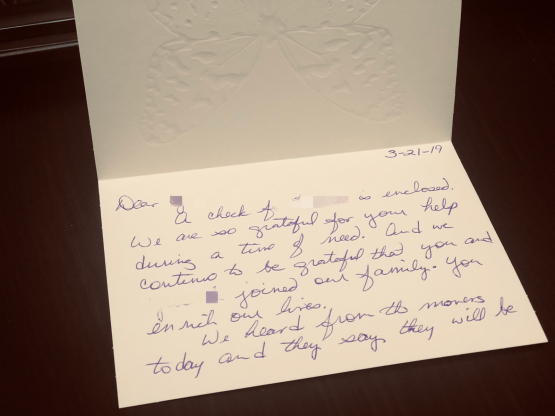 3-21-19
Dear
A check of is enclosed.
We are so grateful for your help
during a time of need. And we
continue to be grateful that you and
joined our family. You
enrich our lives.
We heard from the movers
today and they say they will be